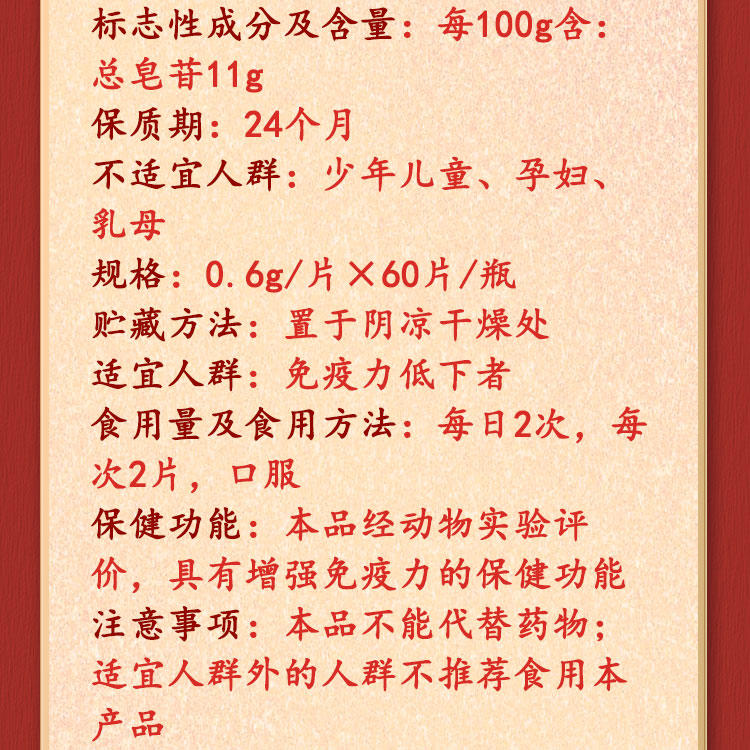 标志性成分及含量：每100g含：
总皂苷11g
保质期：24个月
不适宜人群：少年儿童、孕妇、
乳母
规格：0.6g/片×60片/瓶
贮藏方法：置于阴凉干燥处
适宜人群：免疫力低下者
食用量及食用方法：每日2次，每
次2片，口服
保健功能：本品经动物实验评
价，具有增强免疫力的保健功能
注意事项：本品不能代替药物；
适宜人群外的人群不推荐食用本
产品